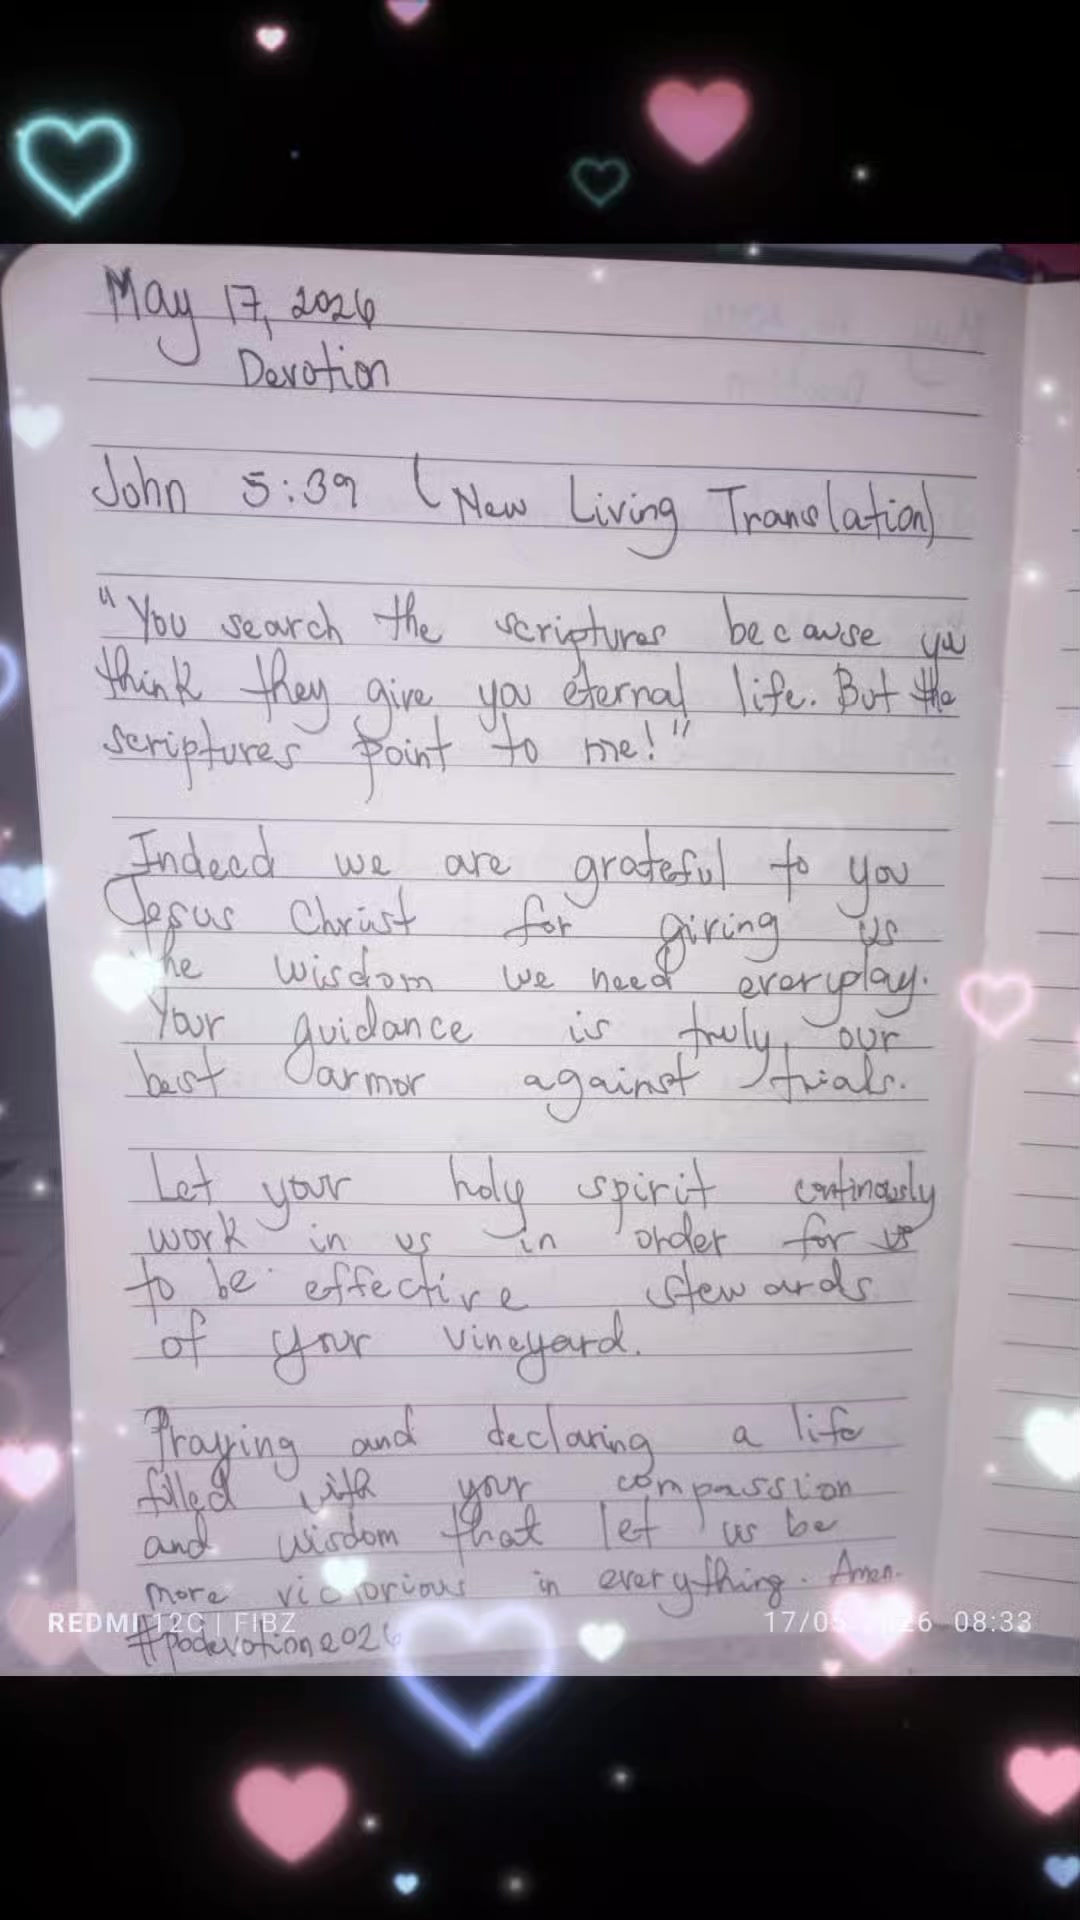 May 17, 2026
Devotion
John 5:39 (New Living Translation)
"You search the scriptures because you
think they give you eternal life. But the
scriptures point to me!"
Indeed we are grateful to you
Jesus Christ for giving us
the wisdom we need everyday.
Your guidance is truly our
best armor against trials.
Let your holy spirit continously
work in us in order for us
to be effective stewards
of your vineyard.
Praying and declaring a life
filled with your compassion
and wisdom that let us be
more victorious in everything. Amen.
#podevotion2026
REDMI 12C | FIBZ
17/05 26 08:33